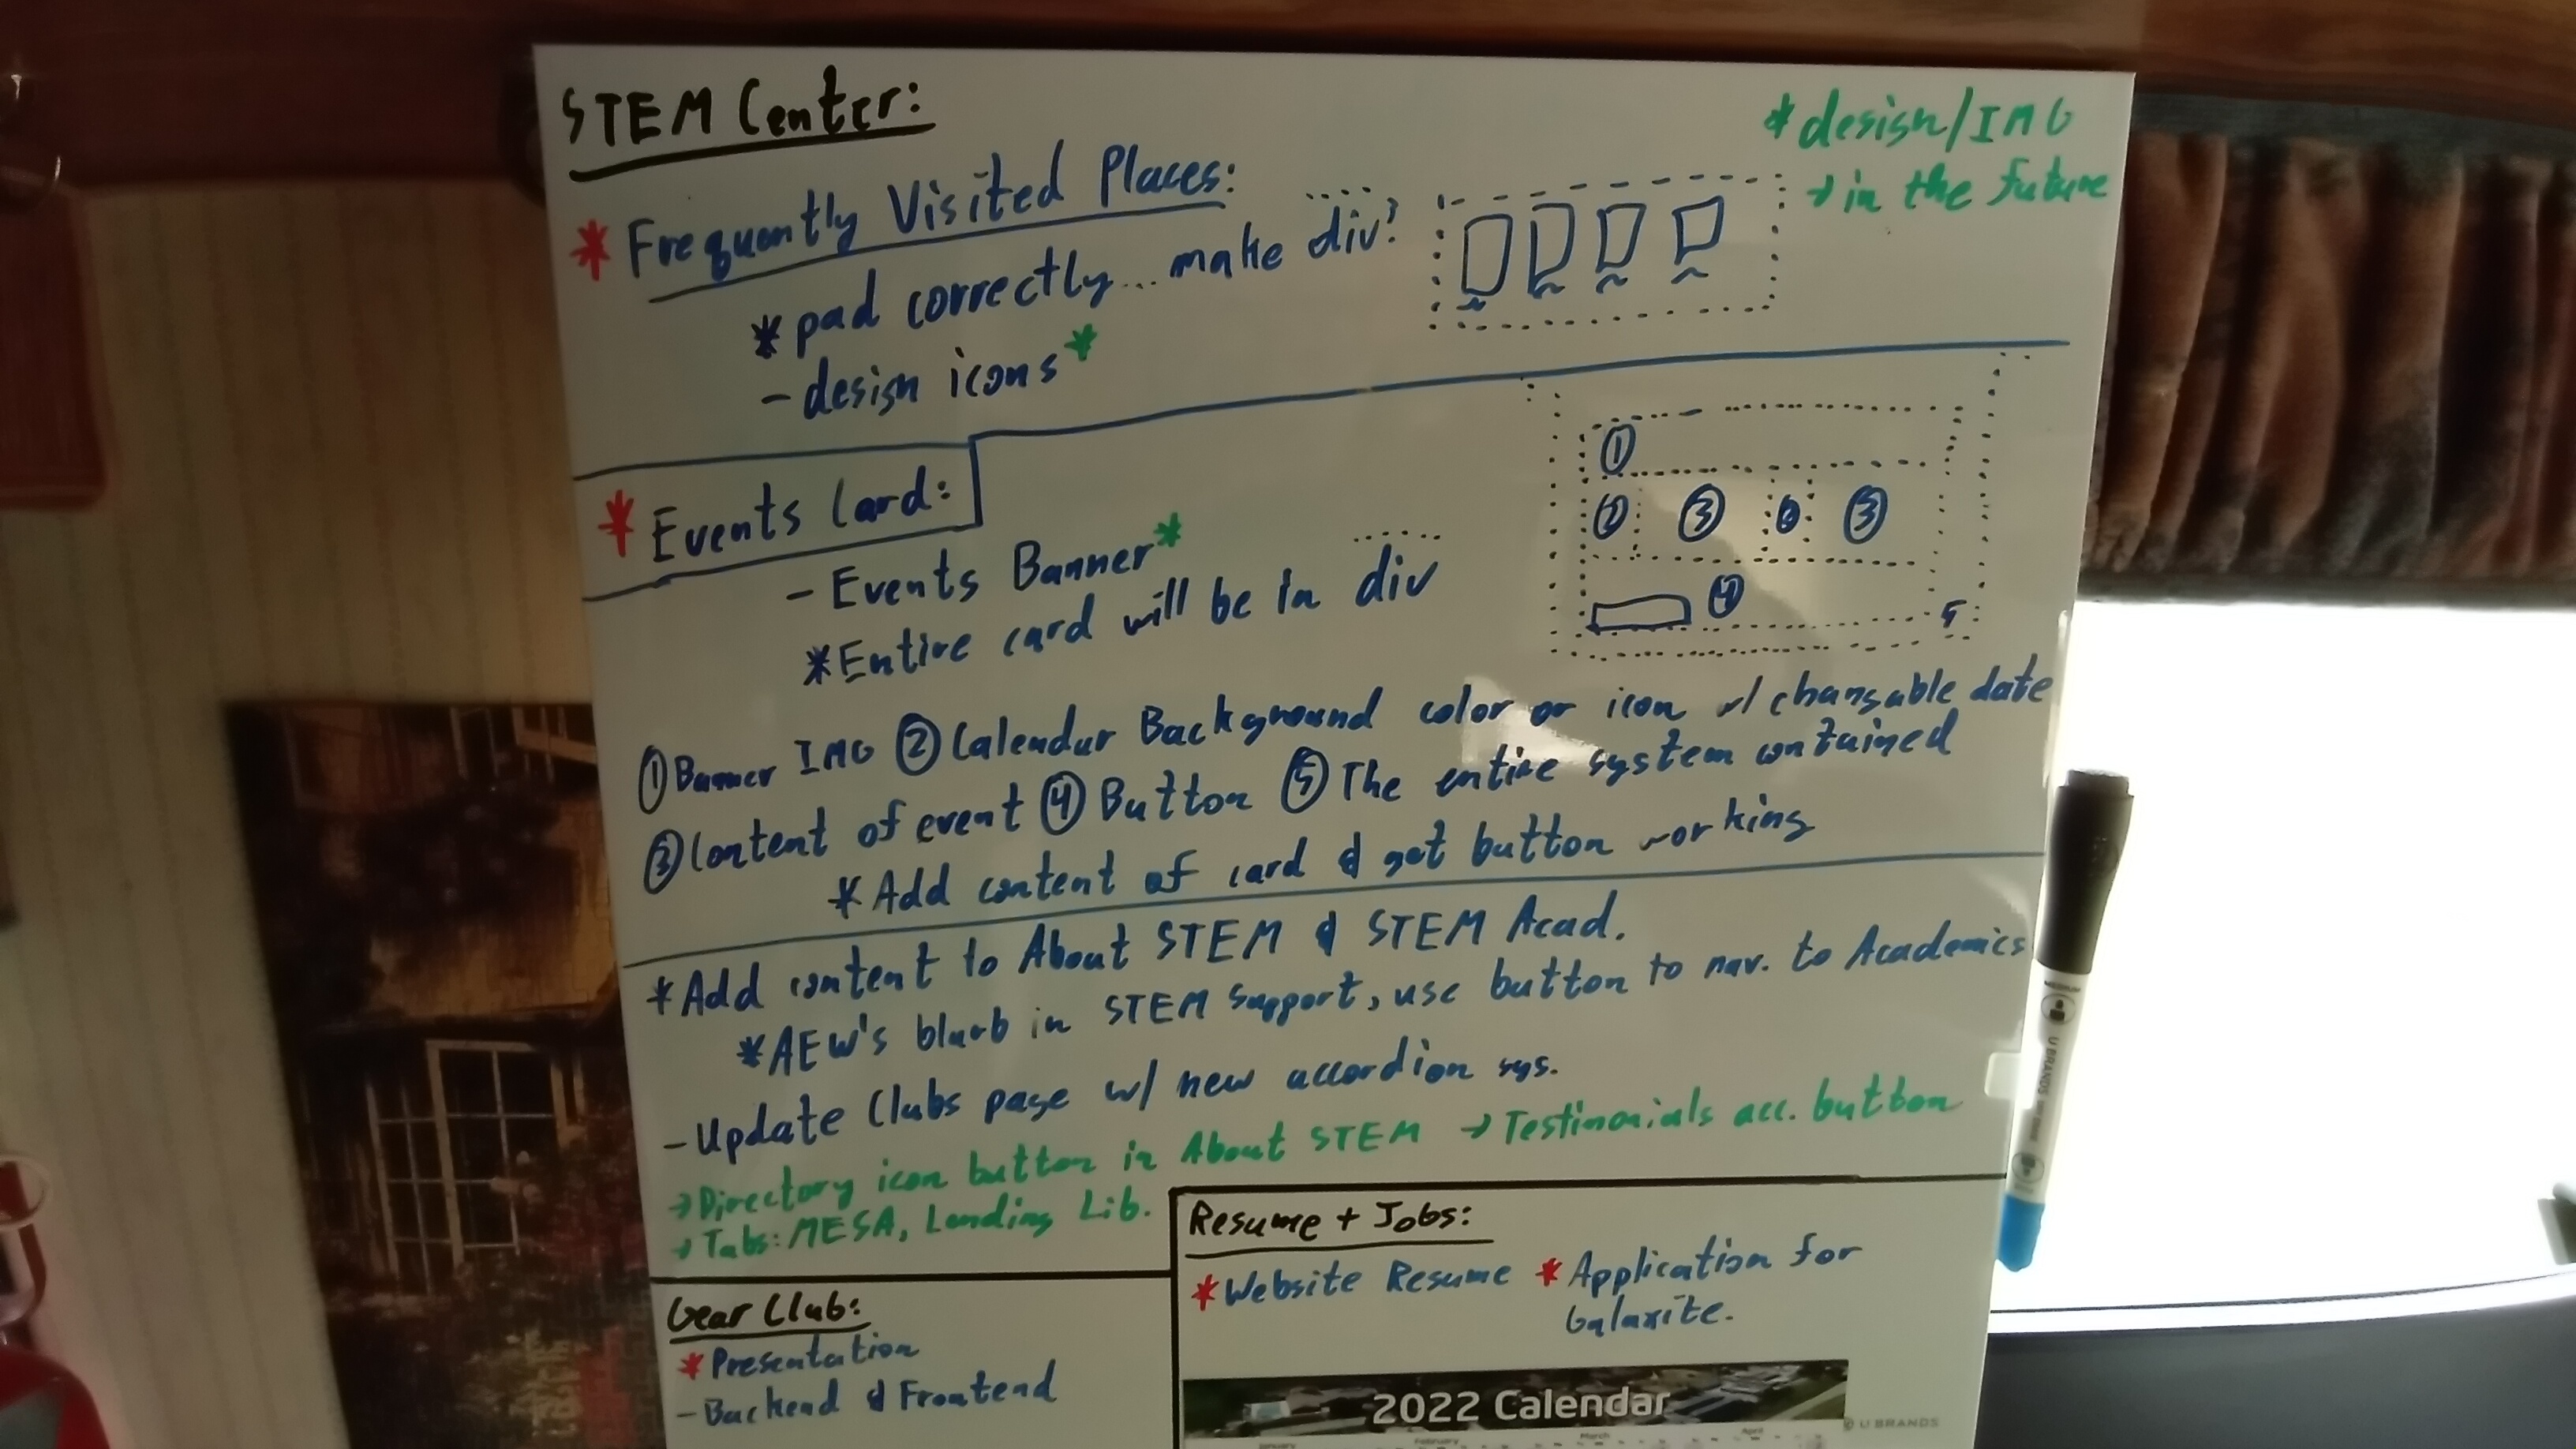 STEM Center:
* design/IMG
→ in the future
* Frequently Visited Places:
* pad correctly... make div?
- design icons*
* Events Card:
- Events Banner*
* Entire card will be in div
① 
② ③ ② ③
④
5
① Banner IMG ② Calendar Background color or icon w/ changable date
③ Content of event ④ Button ⑤ The entire system contained
* Add content of card & get button working
* Add content to About STEM & STEM Acad.
* AEW's blurb in STEM Support, use button to nav. to Academics
- Update Clubs page w/ new accordion sys.
→ Directory icon button in About STEM → Testimonials acc. button
→ Tabs: MESA, Lending Lib.
Resume + Jobs:
* Website Resume * Application for
Galaxite.
Gear Club:
* Presentation
- Backend & Frontend
2022 Calendar
U BRANDS
January February March April
U BRANDS